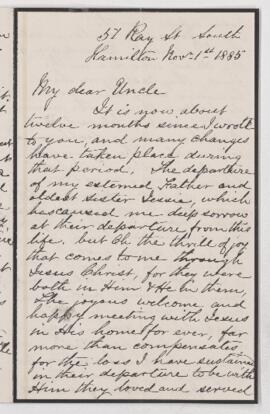 57 Ray St South
Hamilton Nov. 1st 1885
My dear Uncle
It is now about
twelve months since I wrote
to you, and many changes
have taken place during
that period. The departure
of my esteemed Father and
oldest sister Jessie, which
has caused me deep sorrow
at their departure from this
life. but Oh the thrill of joy
that comes to me through
Jesus Christ, for they were
both in Him & He in them,
The joyous welcome, and
happy meeting with Jesus
in His home for ever, far
more than compensates
for the loss I have sustained
in their departure to be with
Him they loved and served